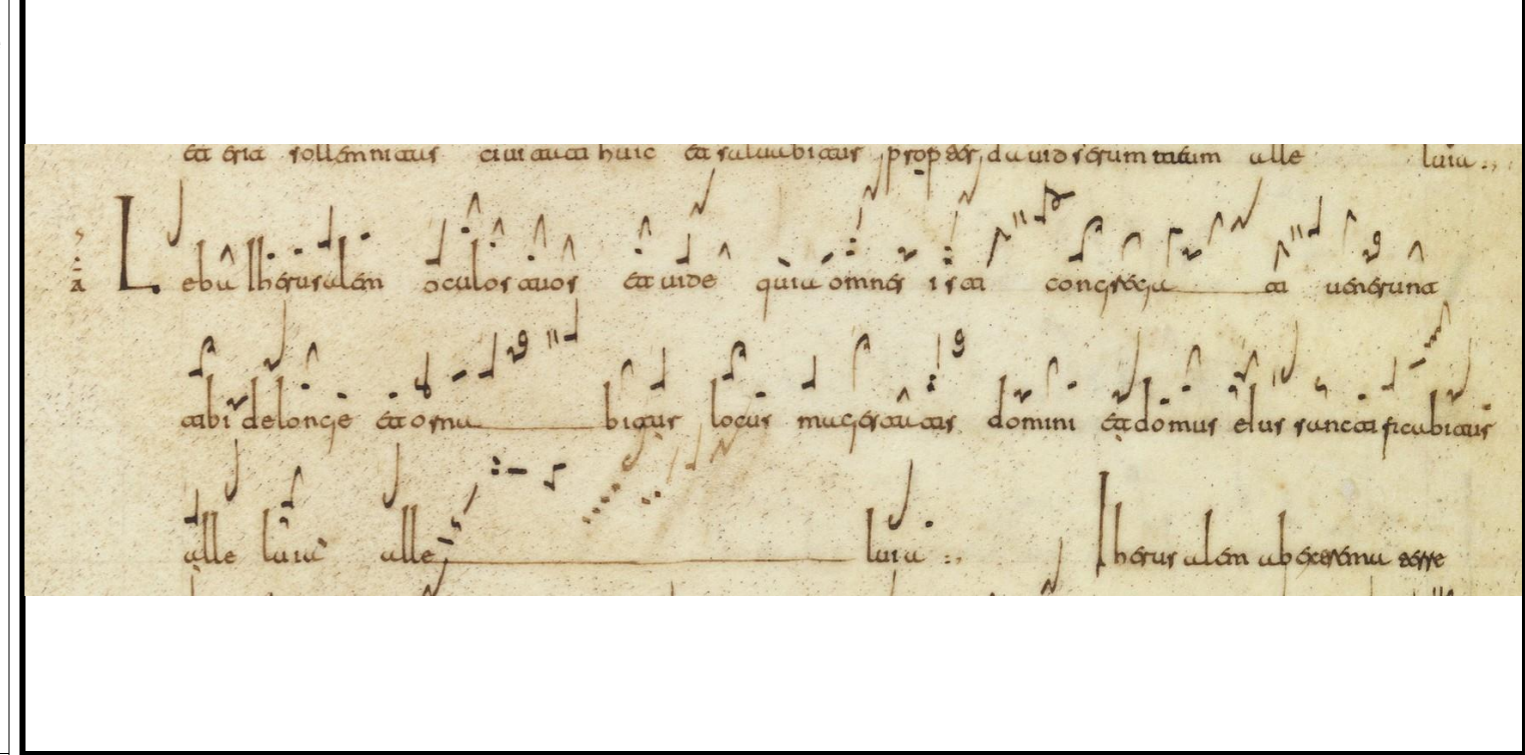 et erit sollemnitas ciuitati huic et saluabitur propter dauid alle luia
Leba Iherusalem oculos tuos et uide quia omnes isti congrega ti uenerunt
tibi de longe et orna bitur locus magestatis domini et domus eius sanctificabitur
alle luia alle luia Iherusalem ab extrema terre